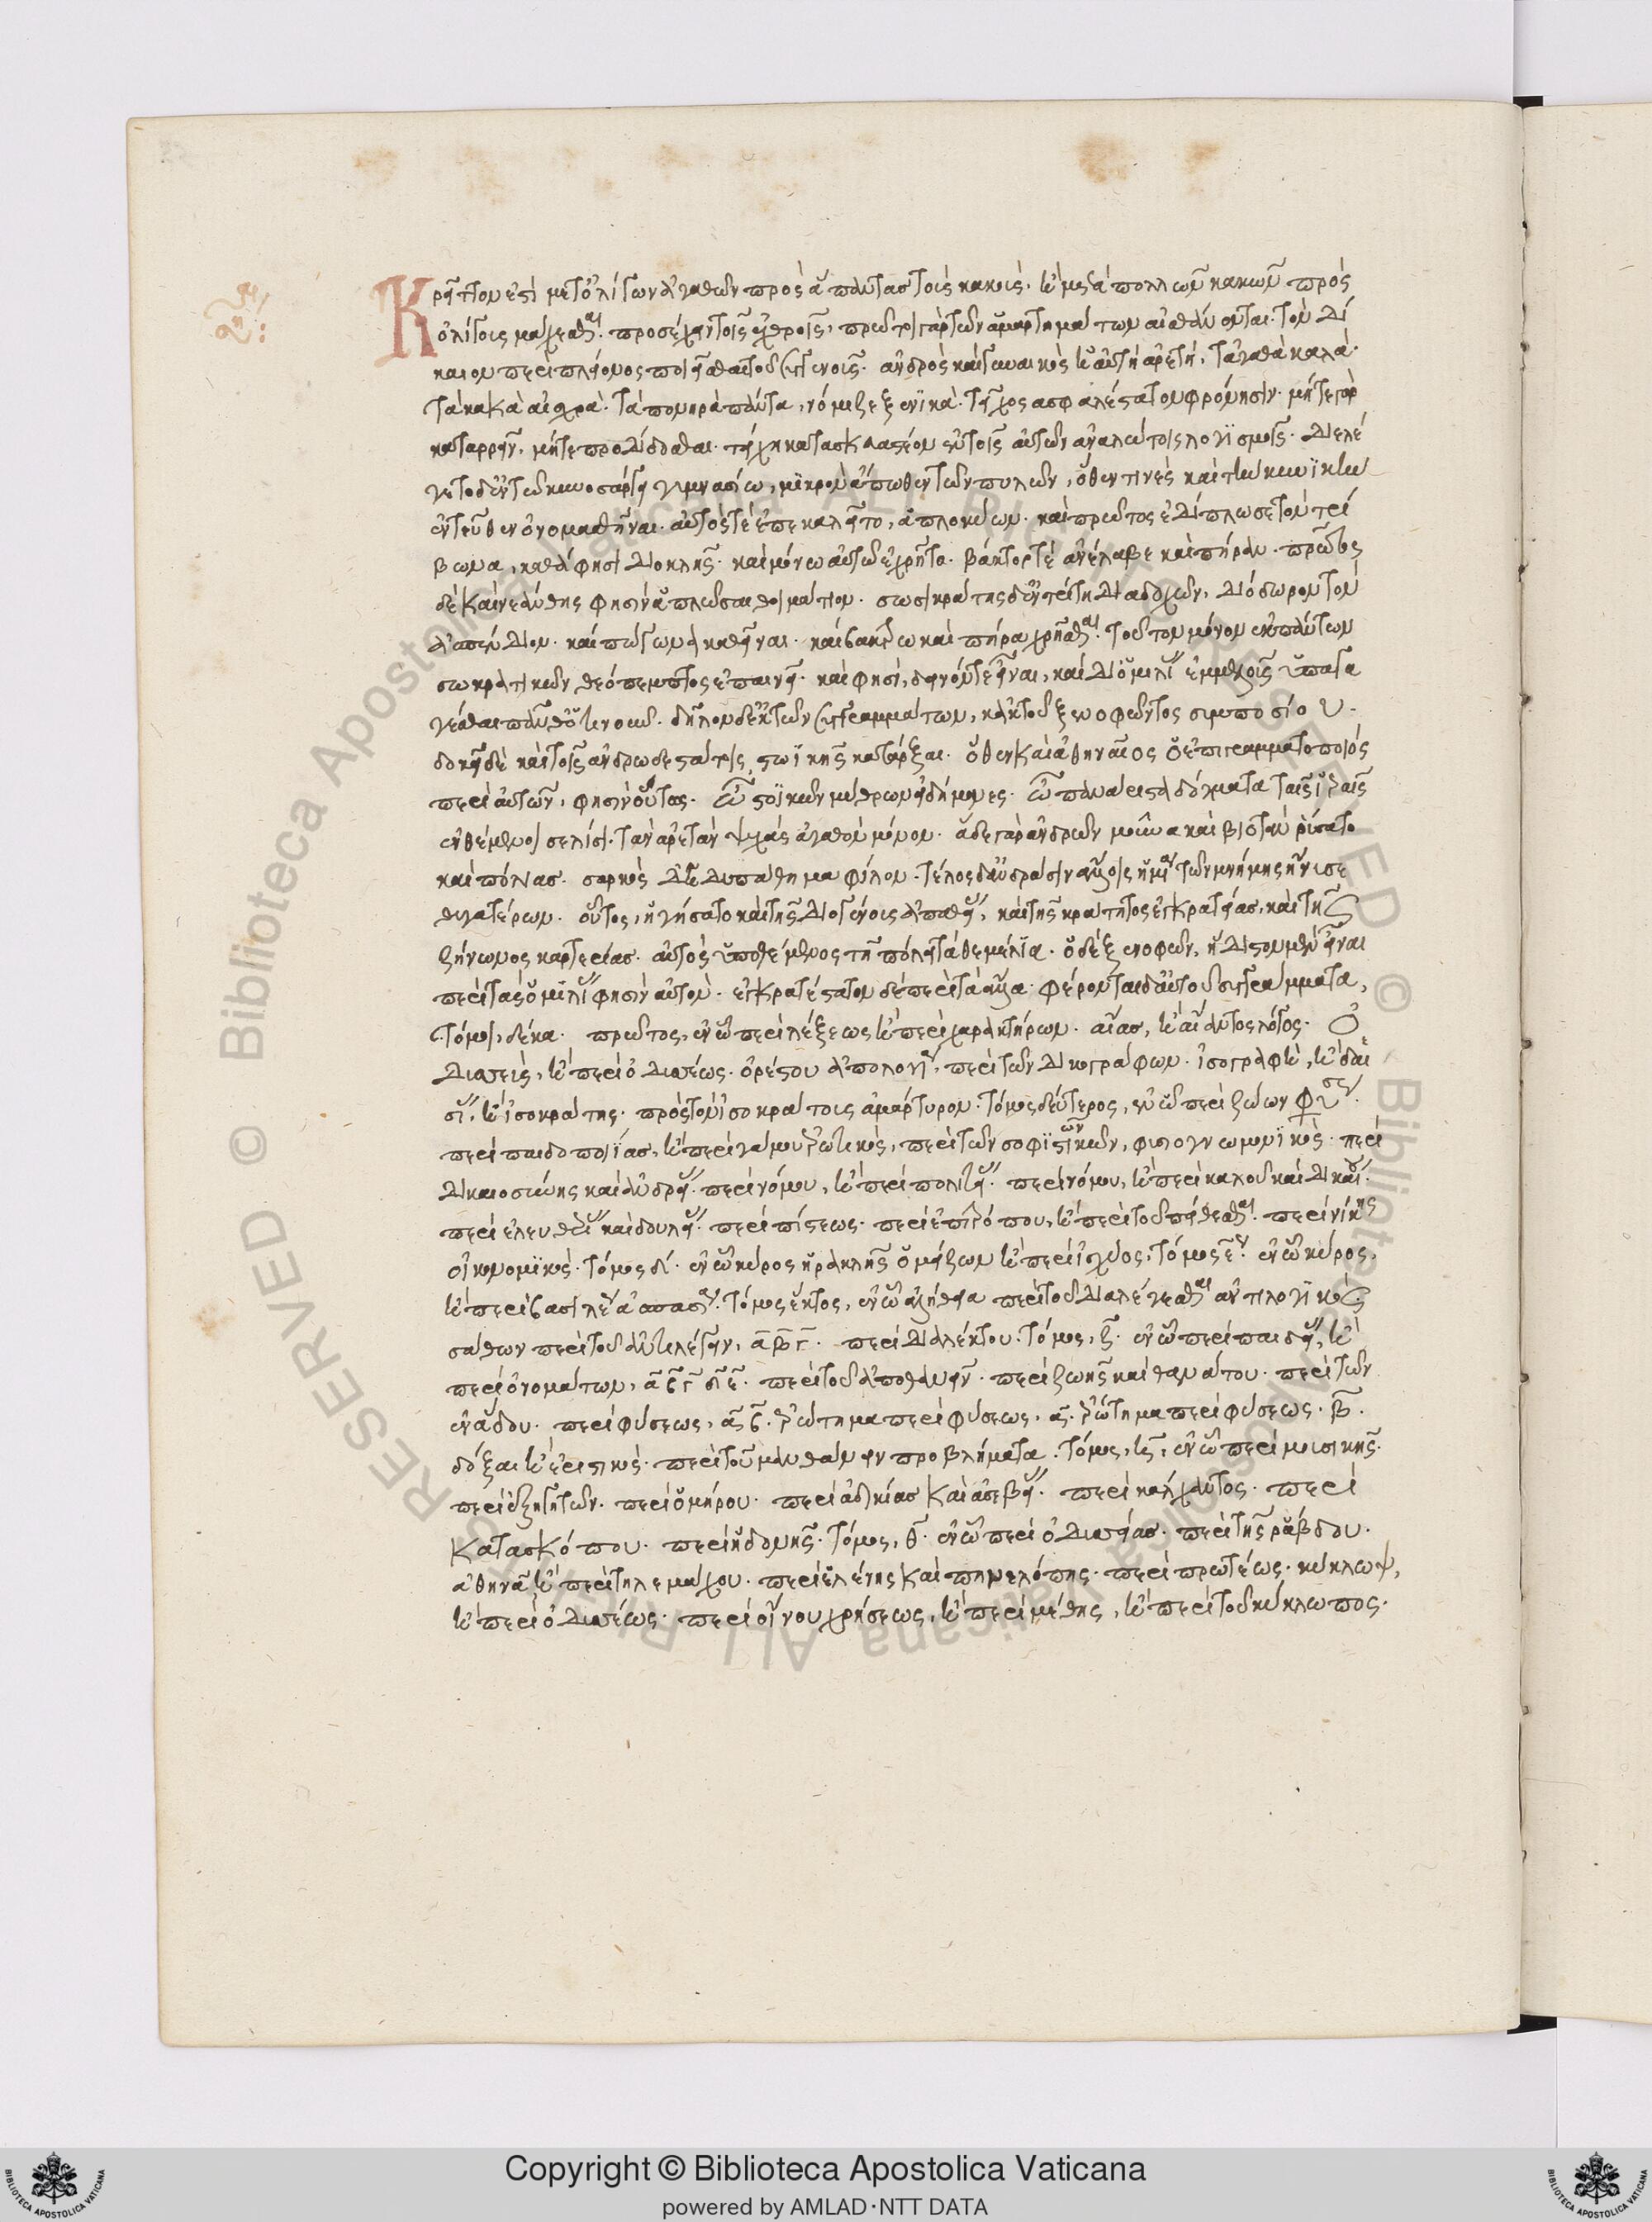 Κρεῖττόν ἐστι μετ' ὀλίγων ἀγαθῶν πρὸς ἅπαντας τοὺς κακοὺς, ἢ μετὰ πολλῶν κακῶν πρὸς
ὀλίγους μάχεσθαι. προσέχειν τοῖς ἐχθροῖς, πρῶτοι γὰρ τῶν ἁμαρτημάτων αἰσθάνονται. τὸν δί
καιον περὶ πλείονος ποιεῖσθαι τοῦ συγγενοῦς. ἀνδρὸς καὶ γυναικὸς ἡ αὐτὴ ἀρετή. τἀγαθὰ καλὰ.
τὰ κακὰ αἰσχρὰ. τὰ πονηρὰ πάντα, νόμιζε ξενϊκὰ. τεῖχος ἀσφαλέστατον φρόνησιν. μήτε γὰρ
καταρρεῖν, μήτε προδίδοσθαι. τείχη κατασκευαστέον ἐν τοῖς αὐτῶν ἀναλώτοις λογϊσμοῖς. διελέ
γετο δ' ἐν τῶ κυνοσάργει γυμνασίω, μϊκρὸν ἄπωθεν τῶν πυλῶν, ὅθεν τινὲς καὶ τὴν κυνϊκὴν
ἐντεῦθεν ὀνομασθῆναι. αὐτός τὲ ἐπεκαλεῖτο, ἁπλοκύων. καὶ πρῶτος ἐδίπλωσε τὸν τρί
βωνα, καθά φησι διοκλῆς. καὶ μόνω αὐτῶ ἐχρῆτο. βάκτρον τὲ ἀνέλαβε καὶ πήραν. πρῶτον
δὲ καὶ νεάνθης φησὶν ἁπλῶσαι θοιμάτιον. σωσικράτης δ' ἐν τρίτη διαδοχῶν, διόδωρον τὸν
ἀσπένδιον. καὶ πώγωνα καθεῖναι. καὶ βάκτρω καὶ πήρα χρῆσθαι. τοῦτον μόνον ἐκ πάντων
σωκρατικῶν θεόπεμπτος ἐπαινεῖ. καὶ φησὶ, δεινόν τε εἶναι, καὶ δι' ὁμιλίας ἐμμελοῦς ὑπαγα
γέσθαι πάνθ' ὁντινοῦν. δῆλον δ' ἐκ τῶν συγγραμμάτων, κἀκ τοῦ ξενοφῶντος συμποσίου.
δοκεῖ δὲ καὶ τῆς ἀνδρωδεστάτης στωϊκῆς κατάρξαι. ὅθεν καὶ ἀθηναῖος ὁ ἐπιγραμματοποιός
περὶ αὐτῶν, φησὶν οὕτως. ὦ στοϊκῶν μύθων εἰδήμονες. ὦ πανάριστα δόγματα ταῖς ἱεραῖς
ἐνθέμενοι σελίσι. τὰν ἀρετὰν ψυχᾶς ἀγαθὸν μόνον. ἅδε γὰρ ἀνδρῶν μούνα καὶ βιοτὰν ῥύσατο
καὶ πόλιας. σαρκὸς δ' ἡδυπάθημα φίλον. τέλος δ' ἀνδράσιν ἄλλοις ἡ μία τῶν μνήμης ἤνυσε
θυγατέρων. οὗτος, ἡγήσατο καὶ τῆς διογένους ἀπαθείας, καὶ τῆς κράτητος ἐγκρατείας, καὶ τῆς
ζήνωνος καρτερίας. αὐτὸς ὑποθέμενος τῆ πόλει τὰ θεμέλια. ὁ δὲ ξενοφῶν, ἥδιστον μὲν εἶναι
περὶ τὰς ὁμιλίας φησὶν αὐτὸν. ἐγκρατέστατον δὲ περὶ τἆλλα. φέρονται δ' αὐτοῦ συγγράμματα,
τόμοι, δέκα. πρῶτος, ἐν ὧ περὶ λέξεως ἢ περὶ χαρακτήρων. αἴας, ἢ αἴαντος λόγος. ὀ
δυσσεὺς, ἢ περὶ ὀδυσσέως. ὀρέστου ἀπολογία, περὶ τῶν δικογράφων. ἰσογραφὴ, ἢ δεσί
ας, ἢ ἰσοκράτης. πρὸς τὸν ἰσοκράτους ἀμάρτυρον. τόμος δεύτερος, ἐν ὧ περὶ ζώων φύσεως.
περὶ παιδοποιΐας, ἢ περὶ γάμου ἐρωτικὸς, περὶ τῶν σοφϊστῶν, φυσιογνωμονϊκὸς. περὶ
δικαιοσύνης καὶ ἀνδρείας. περὶ νόμου, ἢ περὶ πολιτείας. περὶ νόμου, ἢ περὶ καλοῦ καὶ δικαίου.
περὶ ἐλευθερίας καὶ δουλείας. περὶ πίστεως. περὶ ἐπιτρόπου, ἢ περὶ τοῦ πείθεσθαι. περὶ νίκης
οἰκονομϊκὸς. τόμος δ'. ἐν ὧ κύρος ἡρακλῆς ὁ μείζων ἢ περὶ ἰσχύος. τόμος ε'. ἐν ὧ κύρος,
ἢ περὶ βασιλείας ἀσπασία. τόμος ἕκτος, ἐν ὧ ἀλήθεια περὶ τοῦ διαλέγεσθαι ἀντιλογϊκός
σάθων περὶ τοῦ ἀντιλέγειν, α β γ. περὶ διαλέκτου. τόμος, ζ. ἐν ὧ περὶ παιδείας, ἢ
περὶ ὀνομάτων, α β γ δ ε. περὶ τοῦ ἀποθανεῖν. περὶ ζωῆς καὶ θανάτου. περὶ τῶν
ἐν ἅδου. περὶ φύσεως, α β. ἐρώτημα περὶ φύσεως, α. ἐρώτημα περὶ φύσεως. β.
δόξαι ἢ ἐριστικὸς. περὶ τοῦ μανθάνειν προβλήματα. τόμος, η, ἐν ὧ περὶ μουσικῆς.
περὶ ἐξηγητῶν. περὶ ὁμήρου. περὶ ἀδικίας καὶ ἀσεβείας. περὶ κάλχαντος. περὶ
κατασκόπου. περὶ ἡδονῆς. τόμος, θ. ἐν ὧ περὶ ὀδυσσείας. περὶ τῆς ῥάβδου.
ἀθηνᾶ ἢ περὶ τηλεμάχου. περὶ ἑλένης καὶ πηνελόπης. περὶ πρωτέως. κύκλωψ,
ἢ περὶ ὀδυσσέως. περὶ οἴνου χρήσεως, ἢ περὶ μέθης, ἢ περὶ τοῦ κύκλωπος.
Copyright © Biblioteca Apostolica Vaticana
powered by AMLAD·NTT DATA